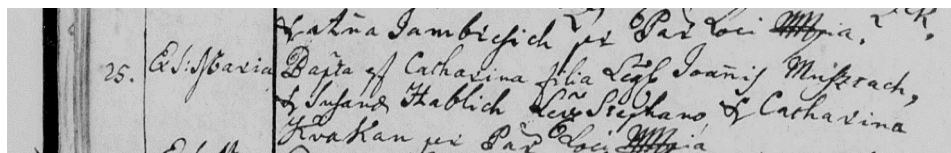 & Anna Jambresich per Par Loci
25. Ex S: Maria Bapta est Catharina filia Legit Joannis Muszrach,
& Susanæ Hablich Lev: Stephano & Catharina
Kvakan per Par Loci